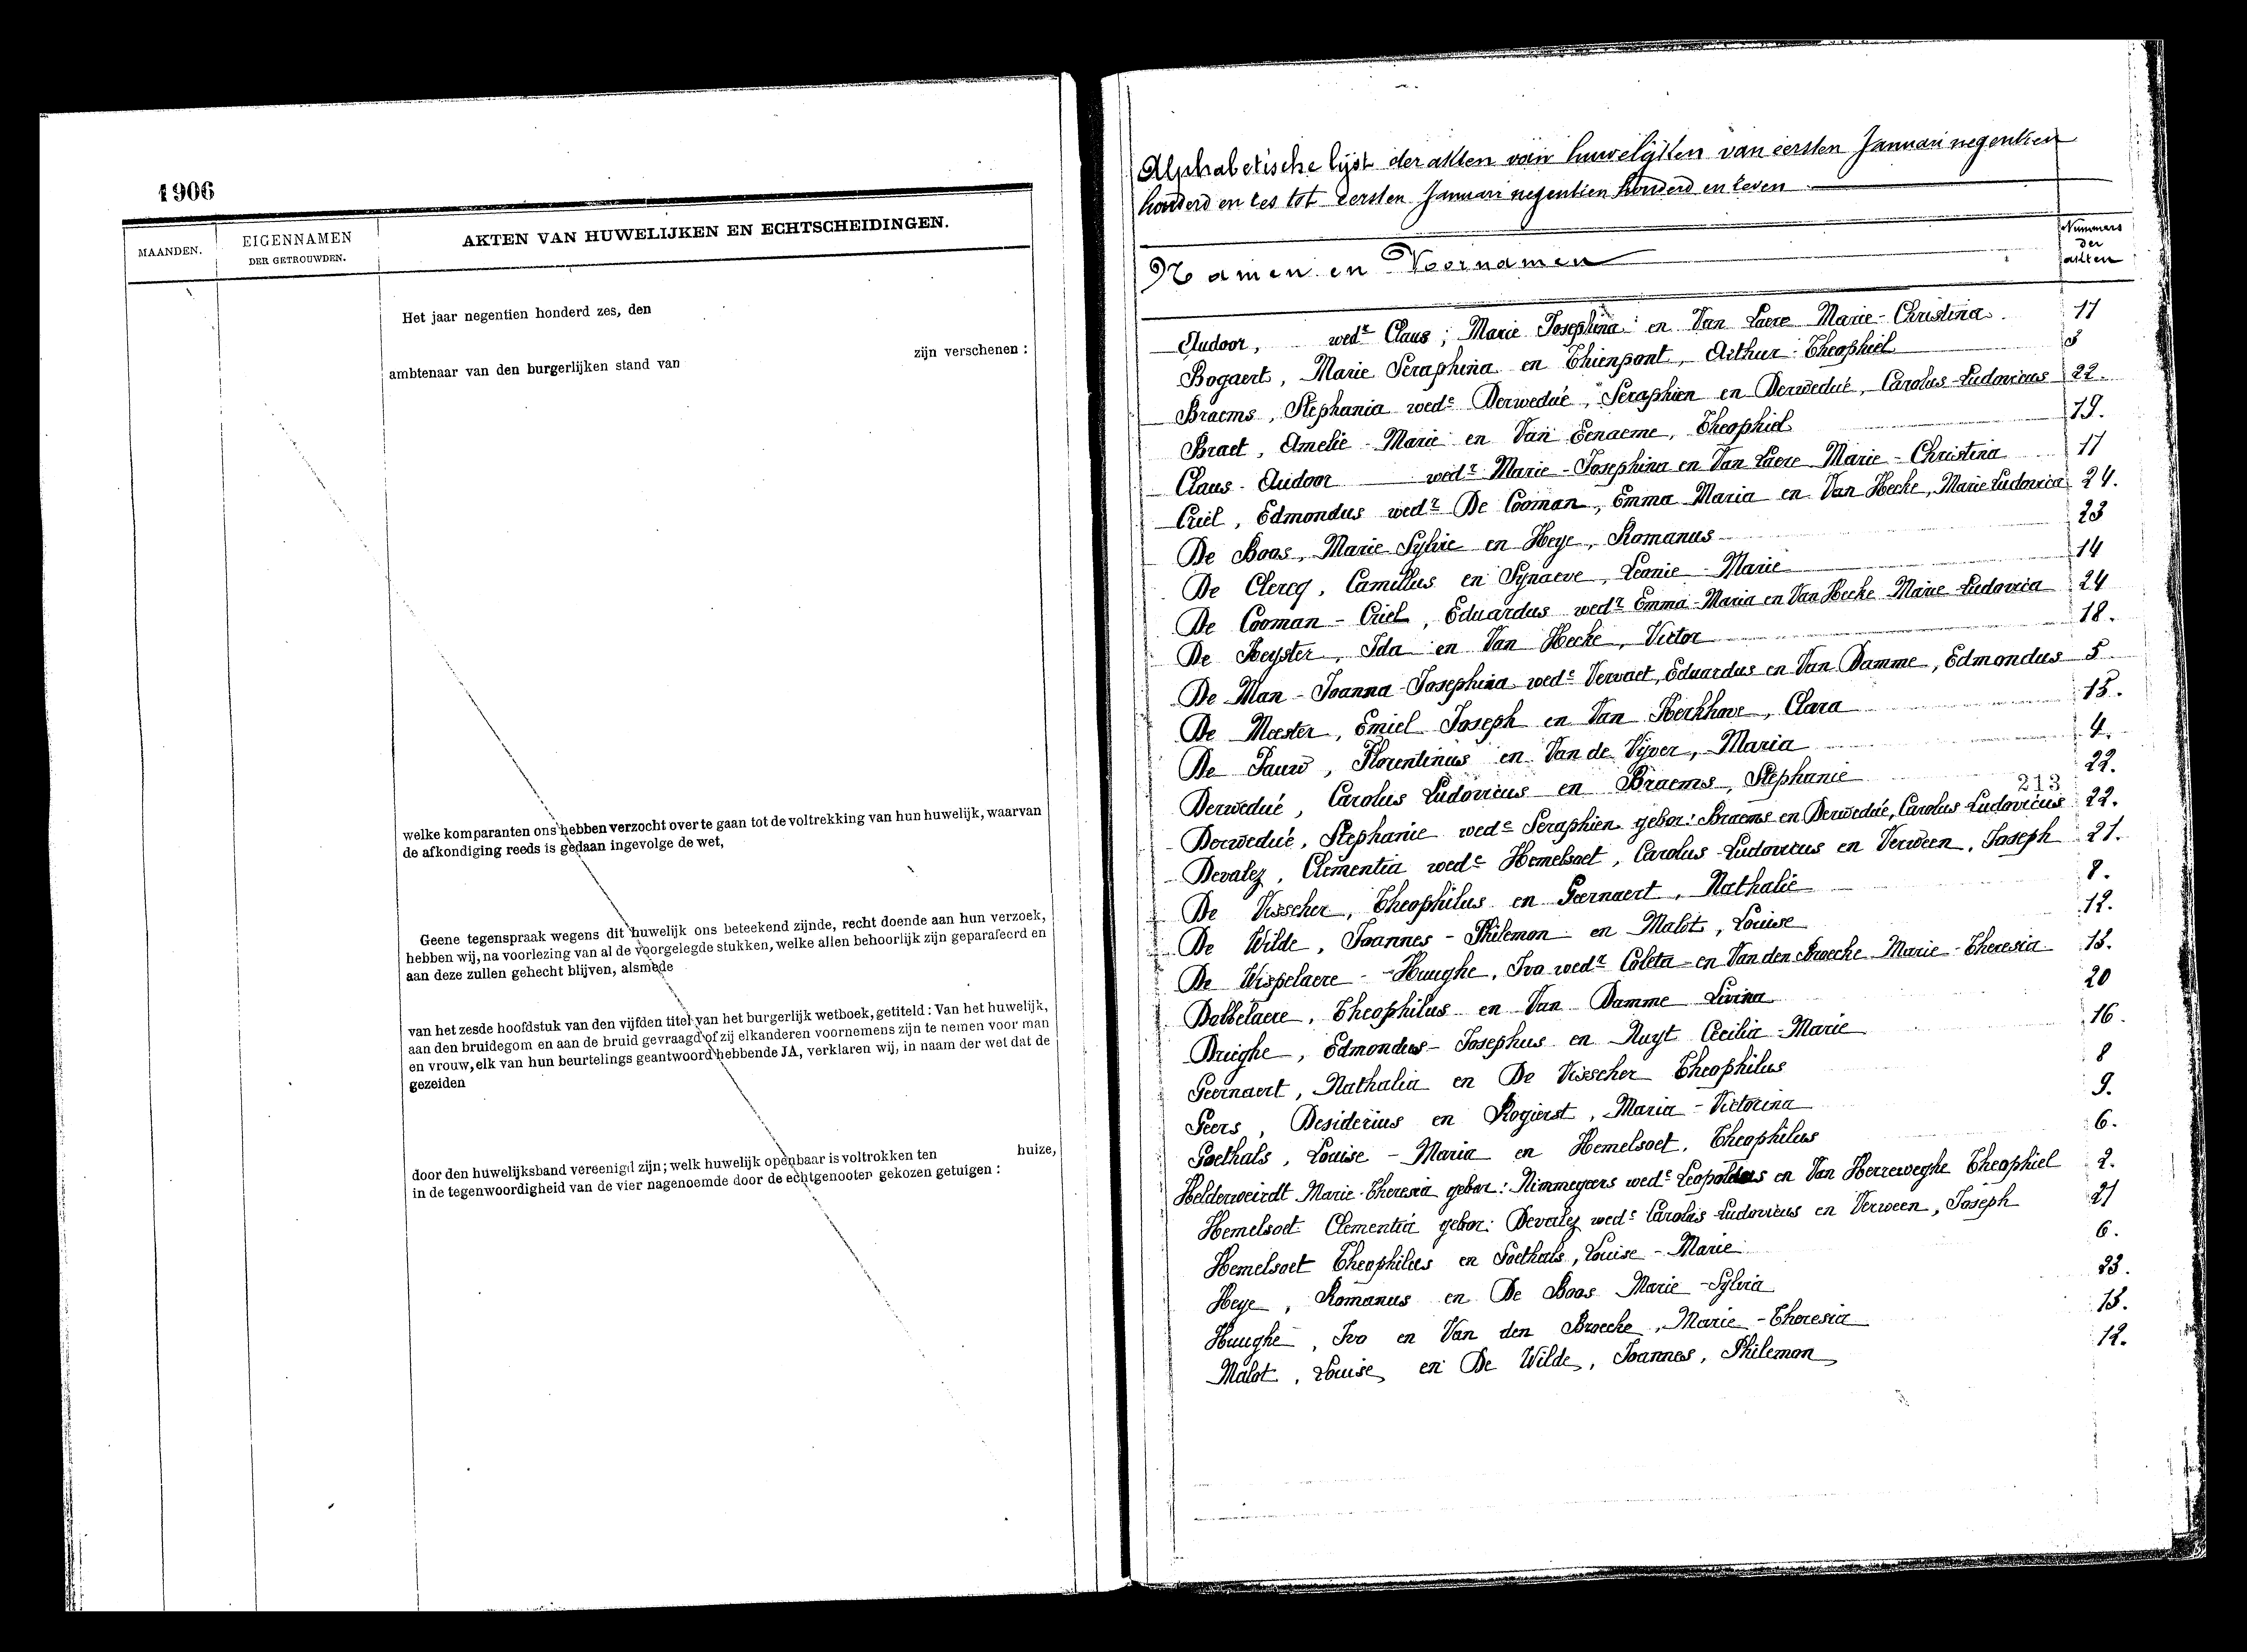 1906
MAANDEN.
EIGENNAMEN
DER GETROUWDEN.
AKTEN VAN HUWELIJKEN EN ECHTSCHEIDINGEN.
Het jaar negentien honderd zes, den
ambtenaar van den burgerlijken stand van zijn verschenen :
welke komparanten ons hebben verzocht over te gaan tot de voltrekking van hun huwelijk, waarvan
de afkondiging reeds is gedaan ingevolge de wet,
Geene tegenspraak wegens dit huwelijk ons beteekend zijnde, recht doende aan hun verzoek,
hebben wij, na voorlezing van al de voorgelegde stukken, welke allen behoorlijk zijn geparafeerd en
aan deze zullen gehecht blijven, alsmede
van het zesde hoofdstuk van den vijfden titel van het burgerlijk wetboek, getiteld : Van het huwelijk,
aan den bruidegom en aan de bruid gevraagd of zij elkanderen voornemens zijn te nemen voor man
en vrouw, elk van hun beurtelings geantwoord hebbende JA, verklaren wij, in naam der wet dat de
gezeiden
door den huwelijksband vereenigd zijn; welk huwelijk openbaar is voltrokken ten huize,
in de tegenwoordigheid van de vier nagenoemde door de echtgenooten gekozen getuigen :
Alphabetische lijst der akten van huwelijken van eersten Januari negentien
honderd en zes tot eersten Januari negentien honderd en zeven
Namen en Voornamen
Nummers
der
akten
Audoor, wedr Claus, Marie Josephina en Van Laere Marie-Christina. 17
Bogaert, Marie Seraphina en Thienpont, Arthur Theophiel 3
Braems, Stephania wede Derwedué, Seraphien en Derwedué, Carolus-Ludovicus 22.
Braet, Amelie-Marie en Van Eenaeme, Theophiel 19.
Claus-Audoor wedr Marie-Josephina en Van Laere Marie-Christina 17
Criel, Edmondus wedr De Cooman, Emma Maria en Van Hecke, Marie Ludovica 24.
De Boos, Marie Sylvie en Heye, Romanus 23
De Clercq, Camillus en Synaeve, Leonie-Marie 14
De Cooman-Criel, Eduardus wedr Emma-Maria en Van Hecke Marie-Ludovica 24
De Keyster, Ida en Van Hecke, Victor 18.
De Man-Joanna-Josephina wede Vervaet, Eduardus en Van Damme, Edmondus 5
De Meester, Emiel Joseph en Van Kerkhove, Clara 15.
De Pauw, Florentinus en Van de Vijver, Maria 4.
Derwedué, Carolus Ludovicus en Braems, Stephanie 22.
213
Derwedué, Stephanie wede Seraphien gebor: Braems en Derwedué, Carolus-Ludovicus 22.
Devalez, Clementia wede Hemelsoet, Carolus-Ludovicus en Verween, Joseph 21.
De Visscher, Theophilus en Geernaert, Nathalie 8.
De Wilde, Joannes-Philemon en Malot, Louise 12.
De Wispelaere-Huughe, Ivo wedr Coleta en Van den Broecke Marie-Theresia 13.
Dobbelaere, Theophilus en Van Damme Livina 20
Drieghe, Edmondus-Josephus en Nuyt Cecilia-Marie 16.
Geernaert, Nathalia en De Visscher Theophilus 8
Geers, Desiderius en Rogierst, Maria-Victorina 9.
Goethals, Louise-Maria en Hemelsoet, Theophilus 6.
Helderweirdt Marie-Theresia gebor: Nimmegeers wede Leopoldus en Van Herreweghe Theophiel 2.
Hemelsoet Clementia gebor: Devalez wede Carolus-Ludovicus en Verween, Joseph 21
Hemelsoet Theophilus en Goethals, Louise-Marie 6.
Heye, Romanus en De Boos Marie-Sylvia 23.
Huughe, Ivo en Van den Broecke, Marie-Theresia 13.
Malot, Louise en De Wilde, Joannes, Philemon 12.